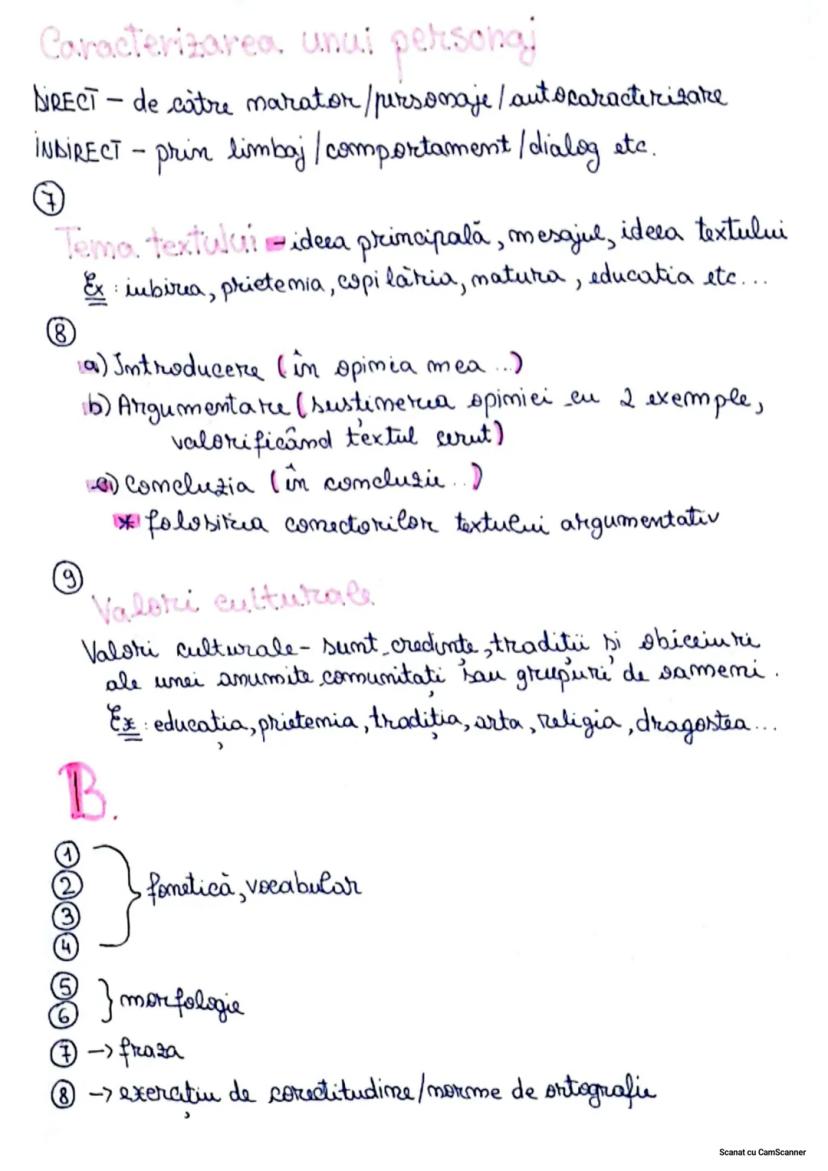 Caracterizarea unui personaj
DIRECT – de către narator/personaje/autocaracterizare
INDIRECT – prin limbaj/comportament/dialog etc.
7
Tema textului – ideea principală, mesajul, ideea textului
Ex: iubirea, prietenia, copilăria, natura, educatia etc...
8
a) Introducere (în opinia mea ...)
b) Argumentare (susținerea opiniei cu 2 exemple,
valorificând textul cerut)
c) Concluzia (în concluzie ..)
* folosirea conectorilor textului argumentativ
9
Valori culturale
Valori culturale – sunt credințe, tradiții și obiceiuri
ale unei anumite comunitați sau grupuri de oameni.
Ex: educația, prietenia, tradiția, arta, religia, dragostea...
B.
1
2
3
4
fonetică, vocabular
5
6
morfologie
7 -> fraza
8 -> exercițiu de corectitudine/norme de ortografie
Scanat cu CamScanner